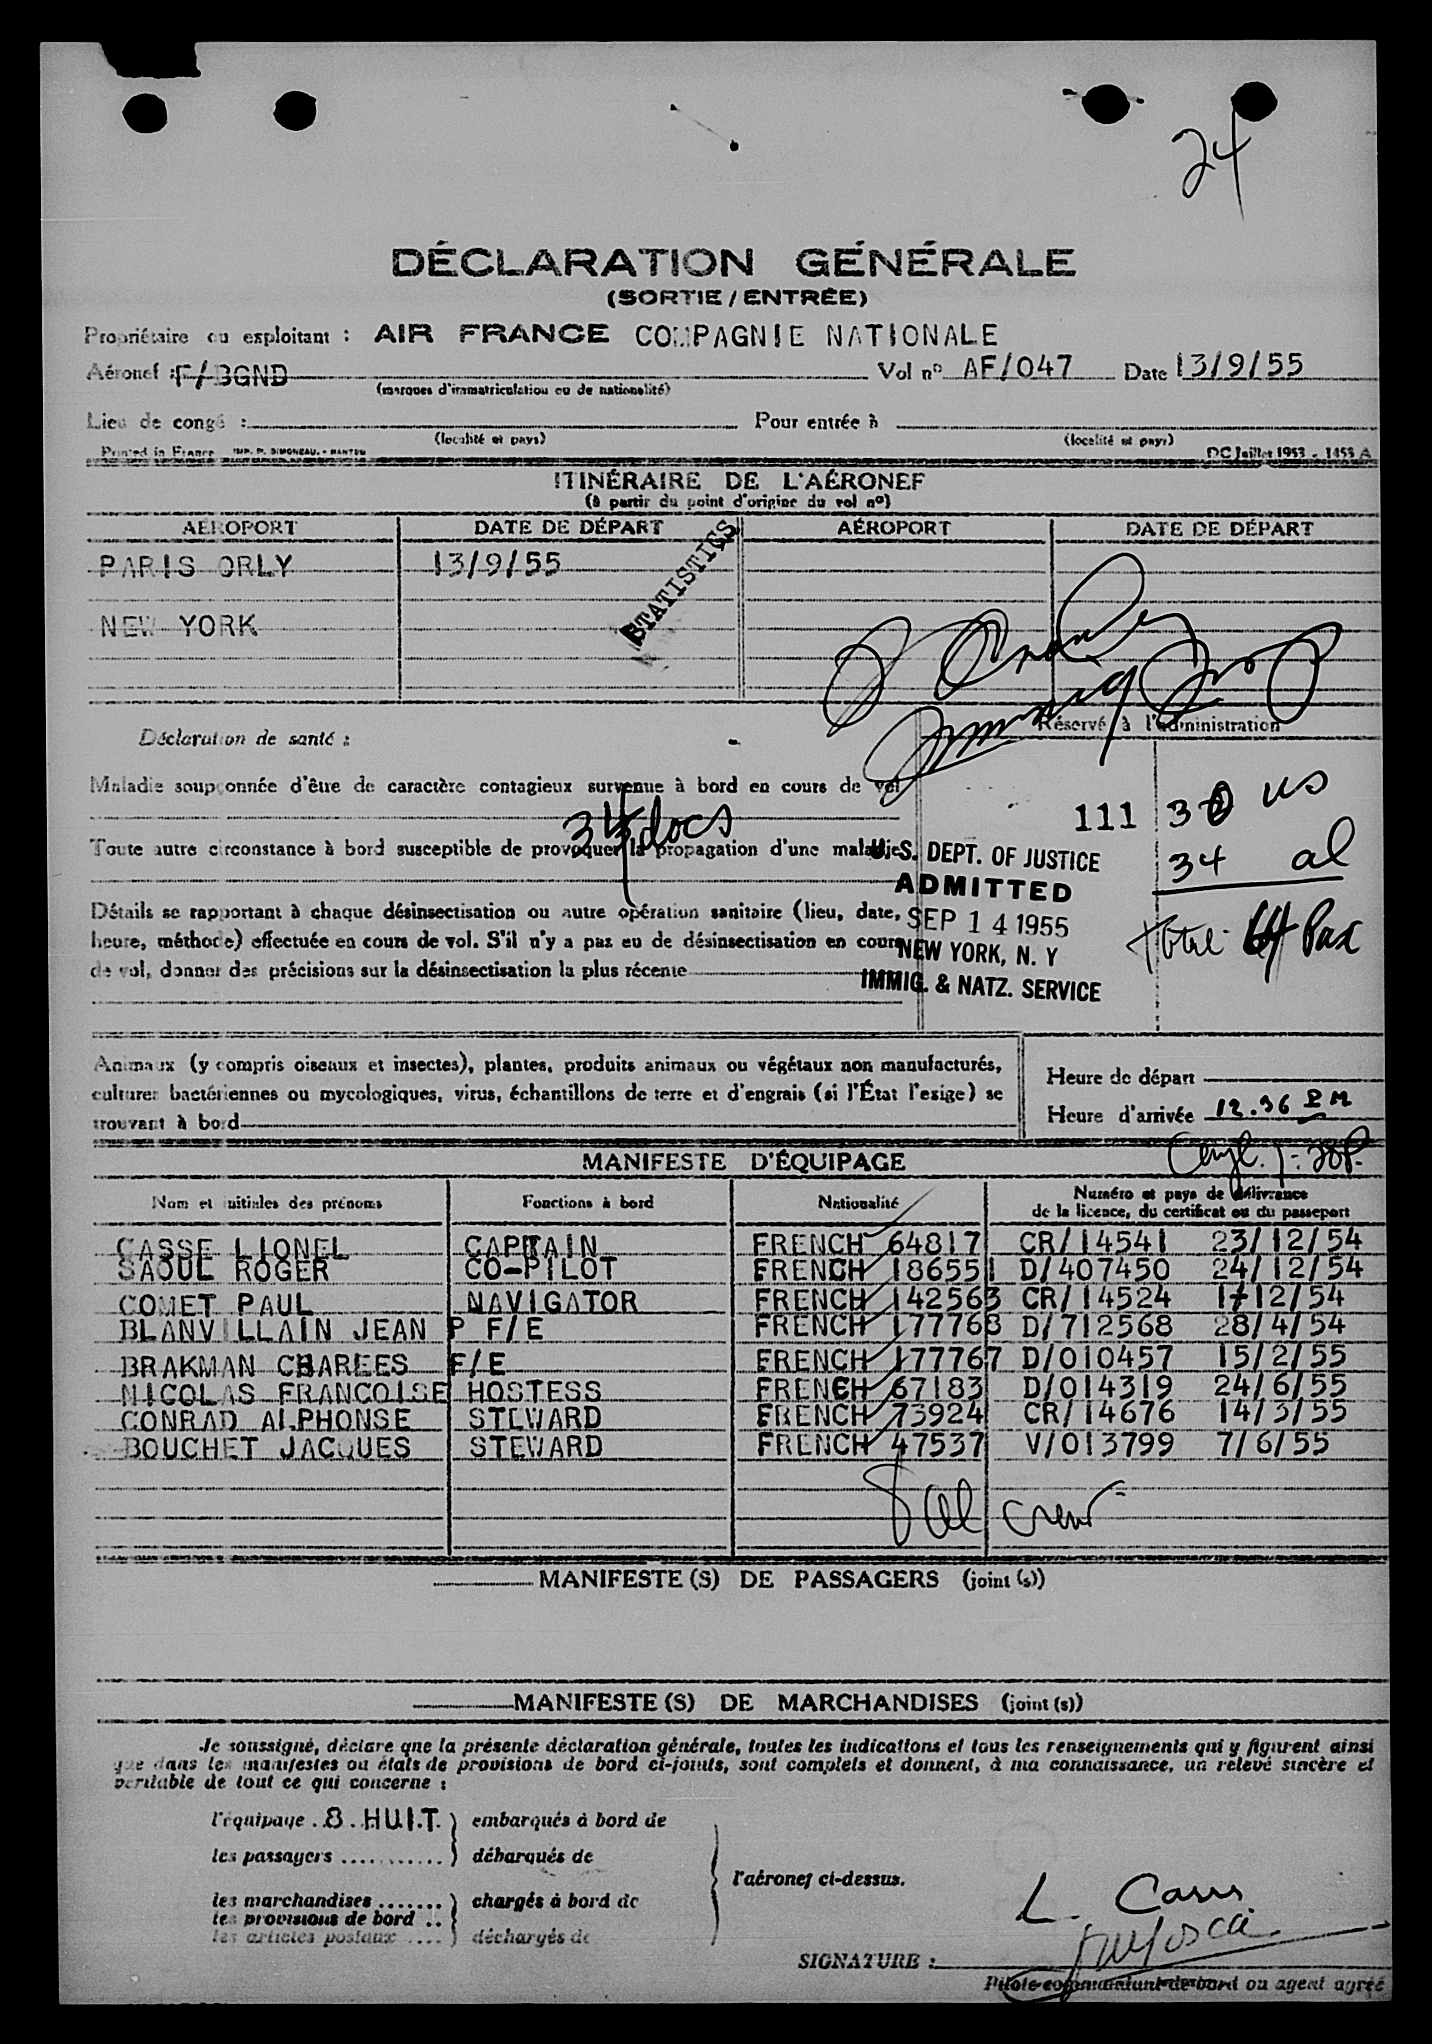 24
DÉCLARATION GÉNÉRALE
(SORTIE / ENTRÉE)
Propriétaire ou exploitant : AIR FRANCE COMPAGNIE NATIONALE
Aéronef : F/BGND Vol nº AF/047 Date 13/9/55
(marques d'immatriculation ou de nationalité)
Lieu de congé : Pour entrée à
(localité et pays) (localité et pays)
Printed in France IMP. P. SIMONEAU. - NANTES DC Juillet 1953 - 1453 A
ITINÉRAIRE DE L'AÉRONEF
(à partir du point d'origine du vol nº)
AÉROPORT DATE DE DÉPART AÉROPORT DATE DE DÉPART
PARIS ORLY 13/9/55
STATISTICS
NEW YORK
Déclaration de santé : Réservé à l'administration
Maladie soupçonnée d'être de caractère contagieux survenue à bord en cours de vol
111 30 US
34 docs
Toute autre circonstance à bord susceptible de provoquer la propagation d'une maladie
U. S. DEPT. OF JUSTICE
34 al
ADMITTED
Détails se rapportant à chaque désinsectisation ou autre opération sanitaire (lieu, date,
SEP 14 1955
heure, méthode) effectuée en cours de vol. S'il n'y a pas eu de désinsectisation en cours
NEW YORK, N. Y
64 Pax
de vol, donner des précisions sur la désinsectisation la plus récente
IMMIG. & NATZ. SERVICE
Animaux (y compris oiseaux et insectes), plantes, produits animaux ou végétaux non manufacturés,
cultures bactériennes ou mycologiques, virus, échantillons de terre et d'engrais (si l'État l'exige) se
trouvant à bord
Heure de départ
Heure d'arrivée 12.36 PM
MANIFESTE D'ÉQUIPAGE
Nom et initiales des prénoms Fonctions à bord Nationalité Numéro et pays de délivrance
de la licence, du certificat ou du passeport
CASSE LIONEL CAPTAIN FRENCH 64817 CR/14541 23/12/54
SAOUL ROGER CO-PILOT FRENCH 186551 D/407450 24/12/54
COMET PAUL NAVIGATOR FRENCH 142563 CR/14524 17/12/54
BLANVILLAIN JEAN P F/E FRENCH 177768 D/712568 28/4/54
BRAKMAN CHARLES F/E FRENCH 177767 D/010457 15/2/55
NICOLAS FRANCOISE HOSTESS FRENCH 67183 D/014319 24/6/55
CONRAD ALPHONSE STEWARD FRENCH 73924 CR/14676 14/3/55
BOUCHET JACQUES STEWARD FRENCH 47537 V/013799 7/6/55
8 al crew
MANIFESTE (S) DE PASSAGERS (joint (s))
MANIFESTE (S) DE MARCHANDISES (joint (s))
Je soussigné, déclare que la présente déclaration générale, toutes les indications et tous les renseignements qui y figurent ainsi
que dans les manifestes ou états de provisions de bord ci-joints, sont complets et donnent, à ma connaissance, un relevé sincère et
véritable de tout ce qui concerne :
l'équipage . 8 . HUIT. } embarqués à bord de
les passagers ........... } débarqués de
l'aéronef ci-dessus.
les marchandises ....... } chargés à bord de
les provisions de bord ..
les articles postaux .... } déchargés de
L. Casse
SIGNATURE :
Pilote commandant de bord ou agent agréé